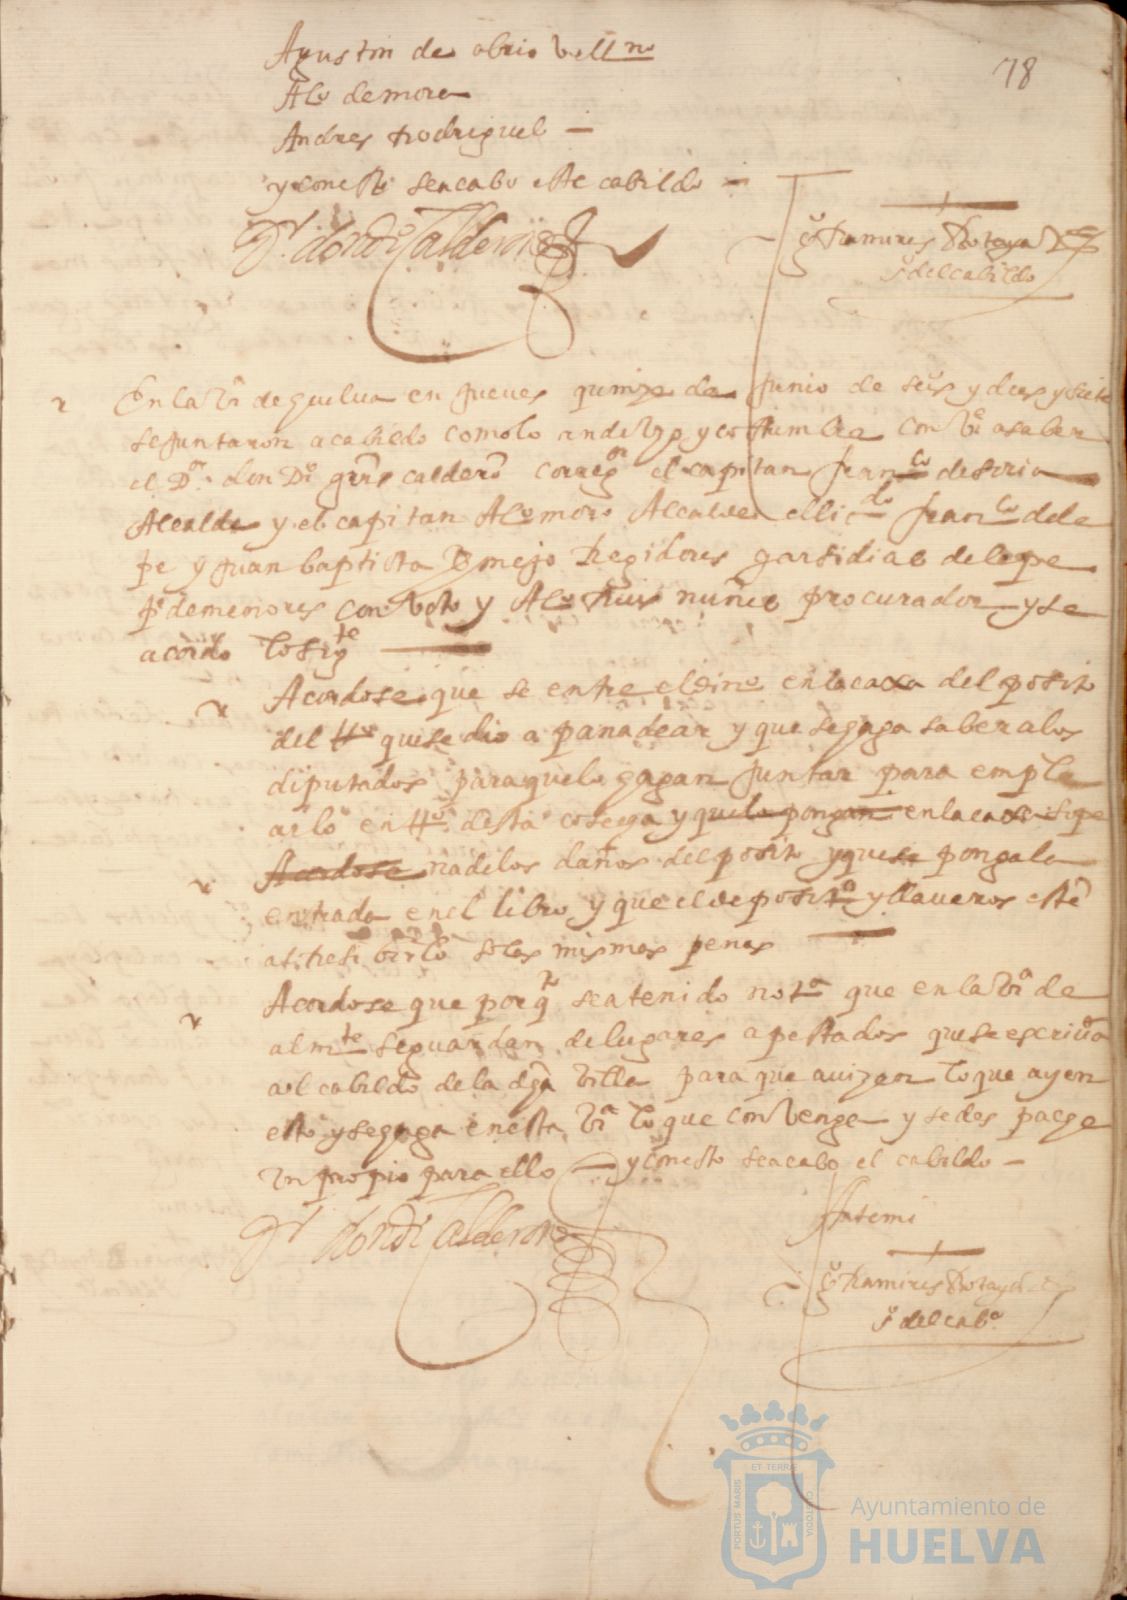 78
Agustin de obrio Vell no
Alo de mora
Andres Rodriguel
y con esto se acabo este cabildo
Dr. don Do Calderon
Ramires
so del cabildo
En la Va de guelva en jueves quinze de Junio de seis y dies y siete
se juntaron a cabildo como lo an de uso y costumbre con Va a saber
el Dor don Do Calderon correg or el capitan Franco de soria
Alcalde y el capitan Alo moro Alcalde el licdo Franco dele
pe y Juan baptista Bmejo Regidores garsi dias de lepe
pe de menores con voto y Alo Ruis nuñes procurador y se
acordo lo sigte
Acordose que se entre el dino en la caxa del posito
del tto que se dio a panadear y que se haga saber a los
diputados para que lo hagan juntar para emple
arlo en tto desta cosega y que lo pongan en la caxa so pe
Acordose na de los daños del posito y que se ponga la
entrada en el libro y que el depositro y llaveros esten
a resibirlo so las mismas penas
Acordose que por q se a tenido nota que en la Va de
almte se guardan de lugares apestados que se escriva
a el cabildo de la dha villa para que avizen lo que ay en
esto y se haga en esta Va lo que convenga y se despache
un propio para ello y con esto se acabo el cabildo
Dr don Do Calderon
Ante mi
Ramires
so del cabo
PORTUS MARIS
ET TERRÆ
CUSTODIA
Ayuntamiento de
HUELVA